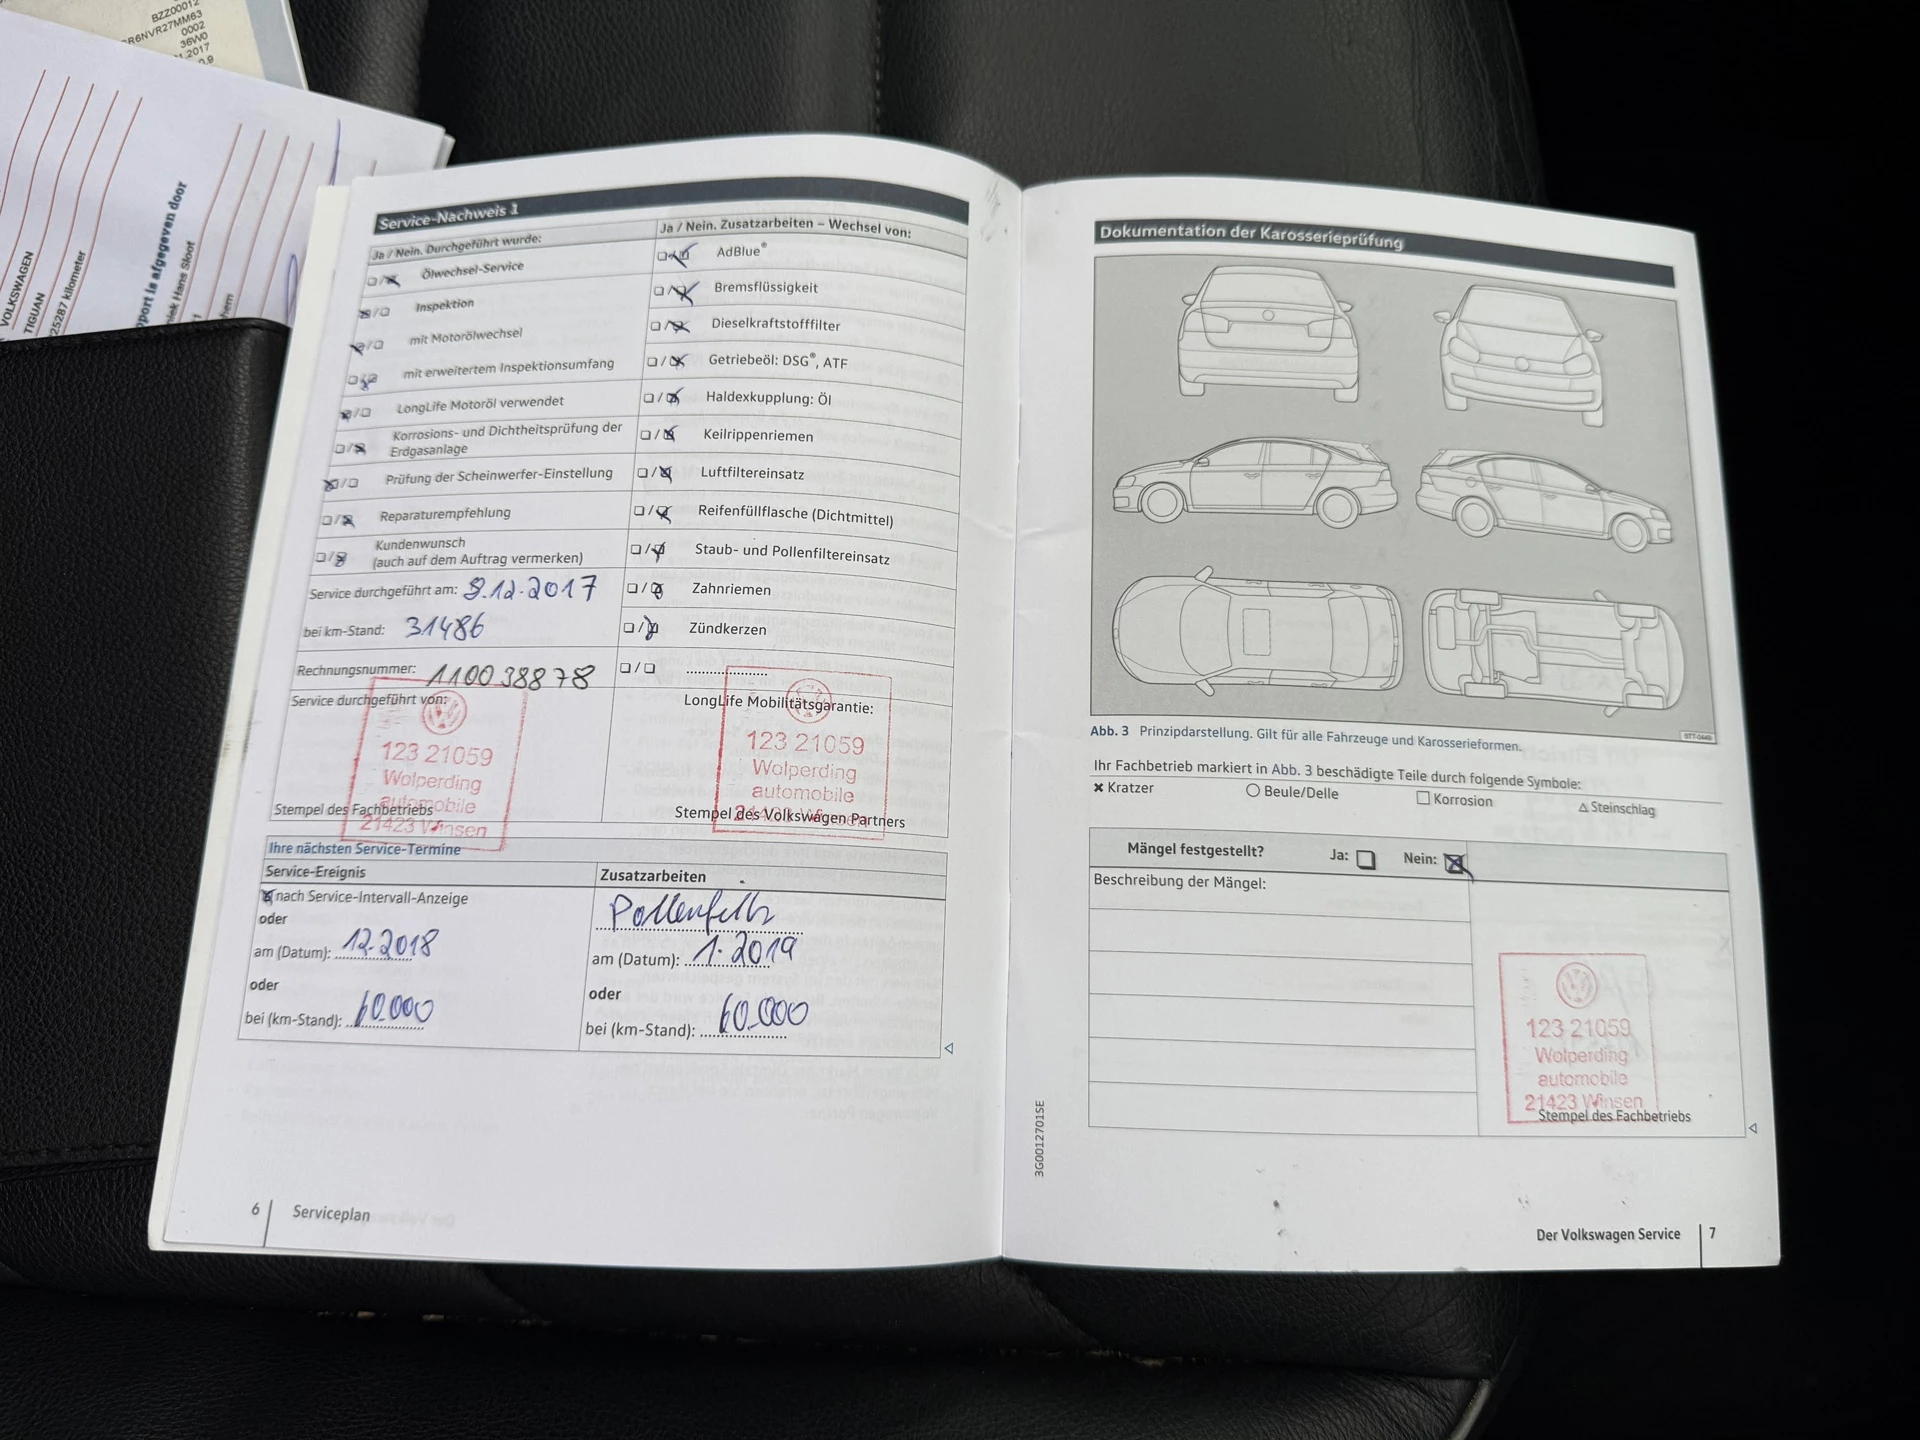 BZZ00012
R6NVR27MM63
0002
36W0
.2017
0.9
VOLKSWAGEN
TIGUAN
25287 kilometer
pport is afgegeven door
niek Hans Sloot
Service-Nachweis 1
Ja / Nein. Durchgeführt wurde:
Ölwechsel-Service
Inspektion
mit Motorölwechsel
mit erweitertem Inspektionsumfang
LongLife Motoröl verwendet
Korrosions- und Dichtheitsprüfung der
Erdgasanlage
Prüfung der Scheinwerfer-Einstellung
Reparaturempfehlung
Kundenwunsch
(auch auf dem Auftrag vermerken)
Service durchgeführt am: 8.12.2017
bei km-Stand: 31486
Rechnungsnummer: 1100 38878
Service durchgeführt von:
123 21059
Wolperding
automobile
21423 Winsen
Stempel des Fachbetriebs
Ja / Nein. Zusatzarbeiten – Wechsel von:
AdBlue®
Bremsflüssigkeit
Dieselkraftstofffilter
Getriebeöl: DSG®, ATF
Haldexkupplung: Öl
Keilrippenriemen
Luftfiltereinsatz
Reifenfüllflasche (Dichtmittel)
Staub- und Pollenfiltereinsatz
Zahnriemen
Zündkerzen
LongLife Mobilitätsgarantie:
123 21059
Wolperding
automobile
21423 Winsen
Stempel des Volkswagen Partners
Ihre nächsten Service-Termine
Service-Ereignis
nach Service-Intervall-Anzeige
oder
am (Datum): 12.2018
oder
bei (km-Stand): 60.000
Zusatzarbeiten
Pollenfilter
am (Datum): 1.2019
oder
bei (km-Stand): 60.000
6 Serviceplan
Dokumentation der Karosserieprüfung
Abb. 3 Prinzipdarstellung. Gilt für alle Fahrzeuge und Karosserieformen.
Ihr Fachbetrieb markiert in Abb. 3 beschädigte Teile durch folgende Symbole:
Kratzer
Beule/Delle
Korrosion
Steinschlag
Mängel festgestellt? Ja: Nein:
Beschreibung der Mängel:
123 21059
Wolperding
automobile
21423 Winsen
Stempel des Fachbetriebs
3G0012701SE
Der Volkswagen Service 7